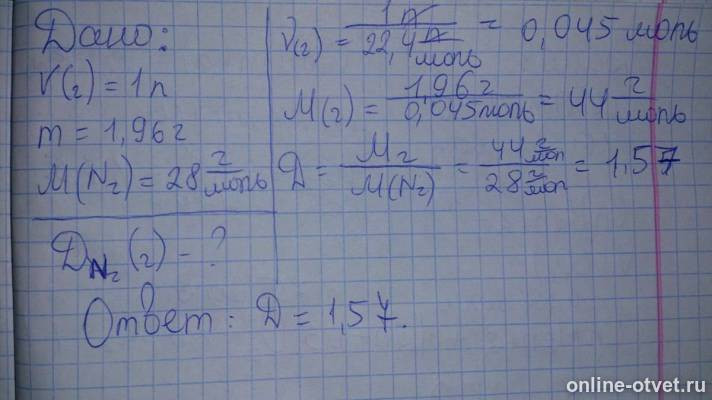 Дано:
V(г) = 1л
m = 1,96 г
M(N₂) = 28 г/моль
D N₂ (г) - ?
ν(г) = 1л / 22,4 л/моль = 0,045 моль
M(г) = 1,96 г / 0,045 моль = 44 г/моль
D = Mг / M(N₂) = 44 г/мол / 28 г/мол = 1,57
Ответ: D = 1,57.
online-otvet.ru